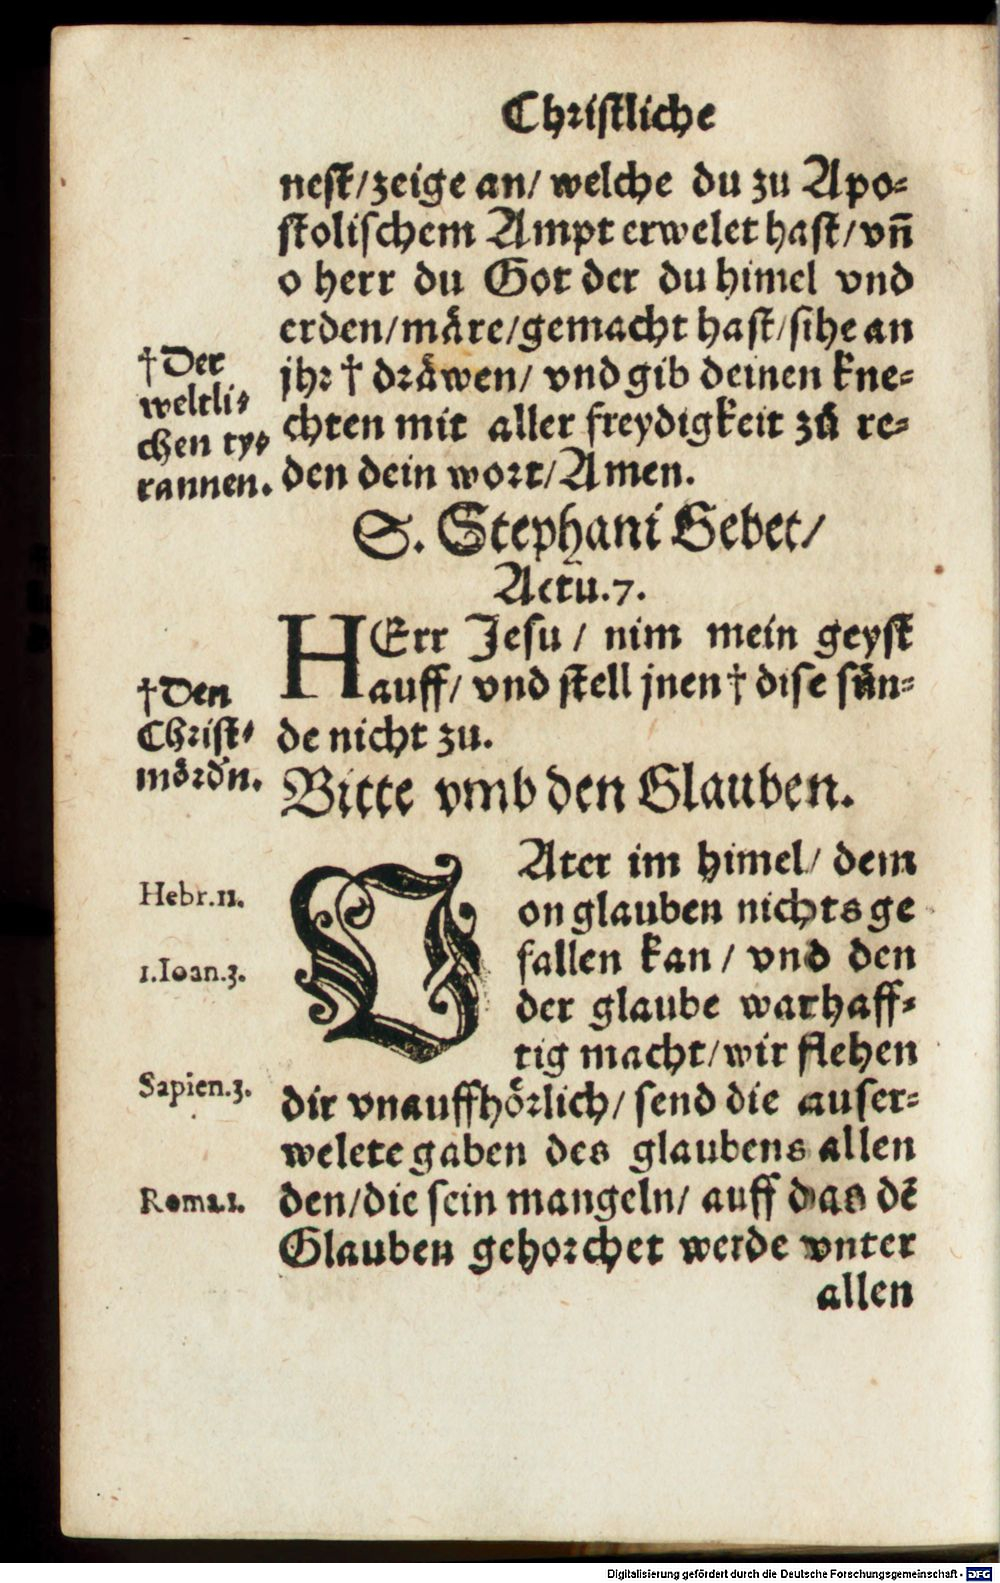 Christliche
nest/zeige an/ welche du zu Apo⸗
stolischem Ampt erwelet hast/vn̄
o herr du Got der du himel vnd
erden/märe/gemacht hast/sihe an
jhr † dräwen/ vnd gib deinen kne⸗
chten mit aller freydigkeit zů re⸗
den dein wort/Amen.
†Der
weltli⸗
chen ty⸗
rannen.
S. Stephani Gebet/
Actu.7.
HErr Jesu/ nim mein geyst
auff/ vnd stell jnen † dise sün⸗
de nicht zu.
†Den
Christ⸗
mördn.
Bitte vmb den Glauben.
VAter im himel/ dem
on glauben nichts ge
fallen kan/ vnd den
der glaube warhaff⸗
tig macht/wir flehen
dir vnauffhörlich/ send die auser⸗
welete gaben des glaubens allen
den/die sein mangeln/ auff das dē
Glauben gehorchet werde vnter
allen
Hebr.11.
1.Ioan.3.
Sapien.3.
Roma.1.
Digitalisierung gefördert durch die Deutsche Forschungsgemeinschaft - DFG